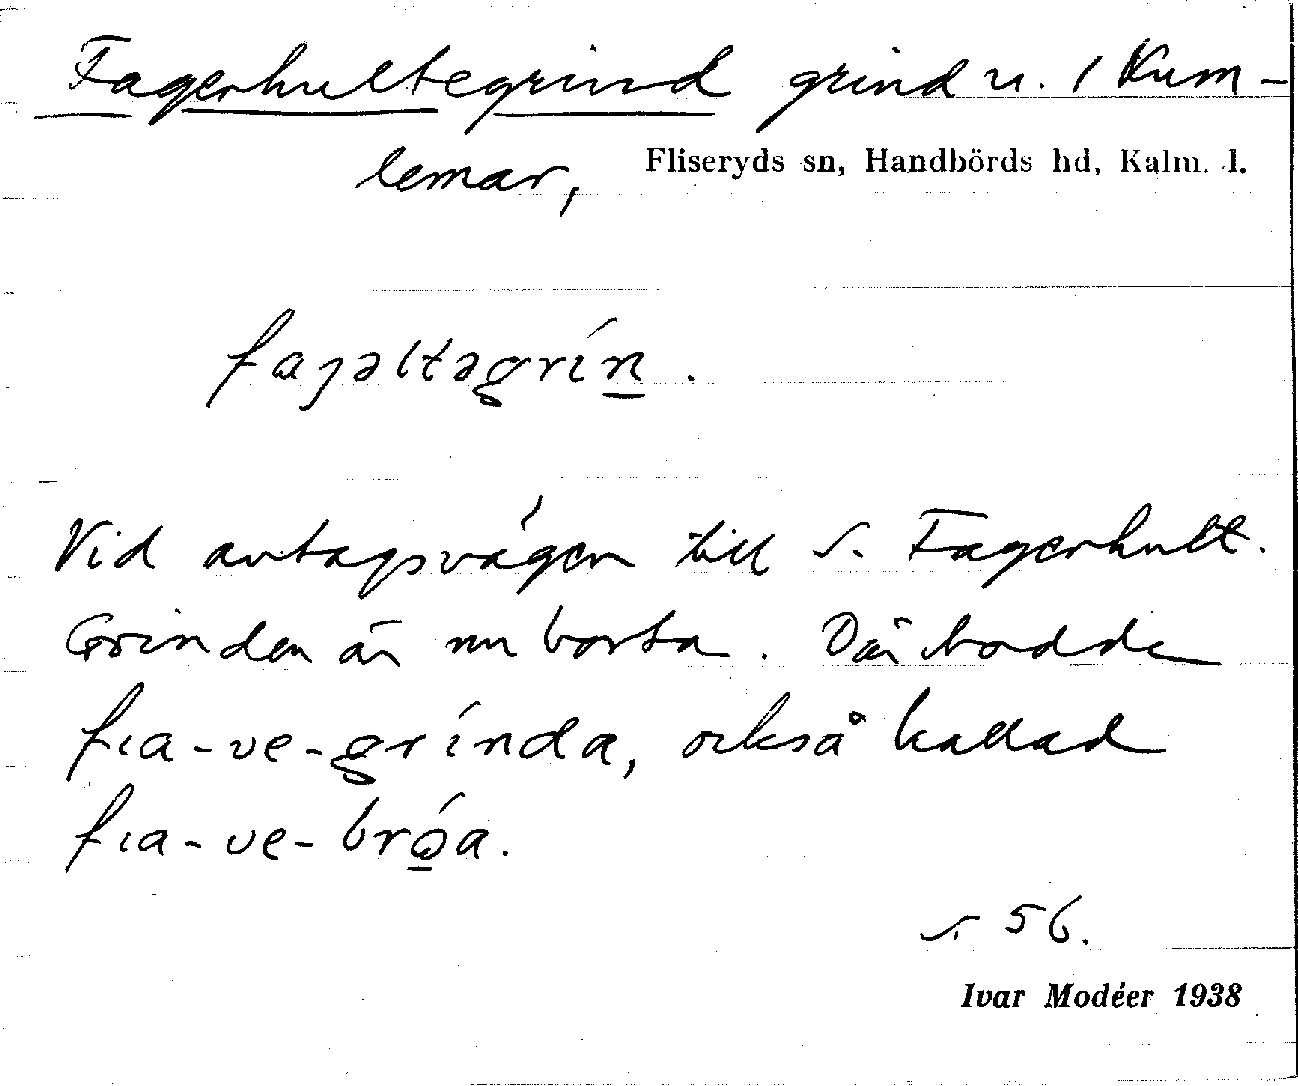 Fagerhultegrind grind u. / Kum-
lemar, Fliseryds sn, Handbörds hd, Kalm. l.
fajəltəgrín.
Vid avtagsvägen till S. Fagerhult.
Grinden är nu borta. Där bodde
fıa-ve-grínda, också kallad
fıa-ve-bróa.
s. 56.
Ivar Modéer 1938